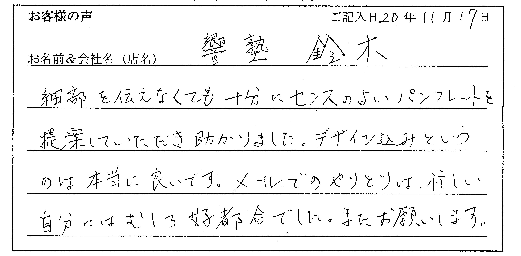 お客様の声 ご記入日.20年11月17日
お名前&会社名(店名) 響塾 鈴木
細部を伝えなくても十分にセンスのよいパンフレットを
提案していただき助かりました。デザイン込みという
のは本当に良いです。メールでのやりとりは、忙しい
自分にはむしろ好都合でした。またお願いします。